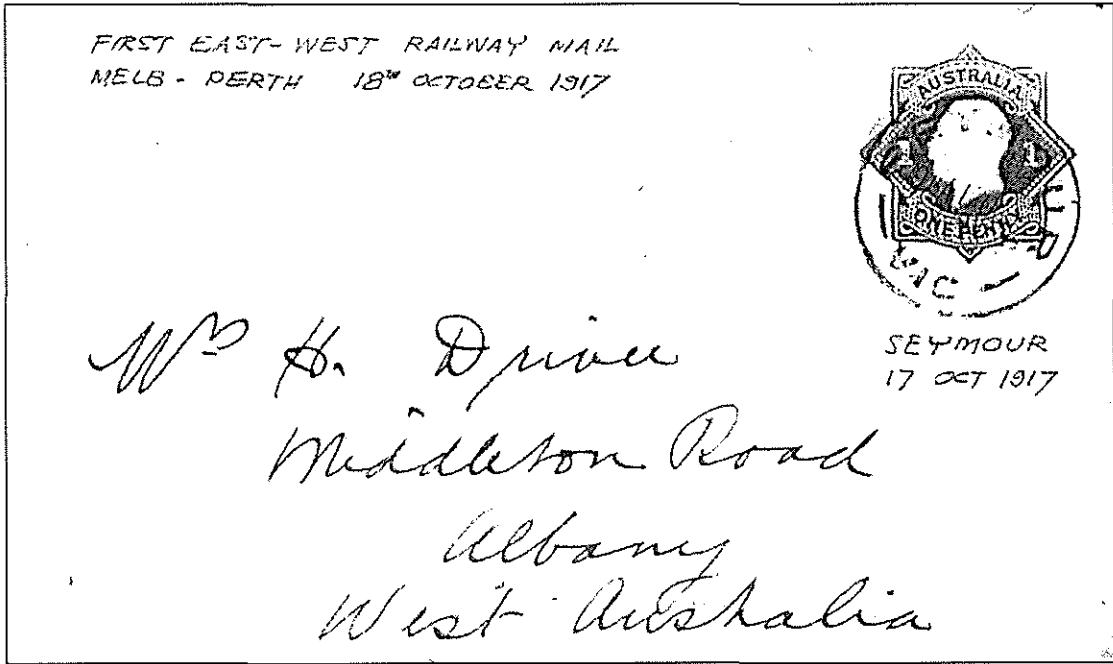 FIRST EAST-WEST RAILWAY MAIL
MELB - PERTH 18TH OCTOBER 1917
AUSTRALIA
1 1
ONE PENNY
UR
VIC
SEYMOUR
17 OCT 1917
H. Driver
Middleton Road
Albany
West Australia